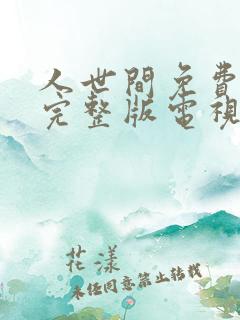 人世間免費
完整版電視
花漾
未任同意禁止转载